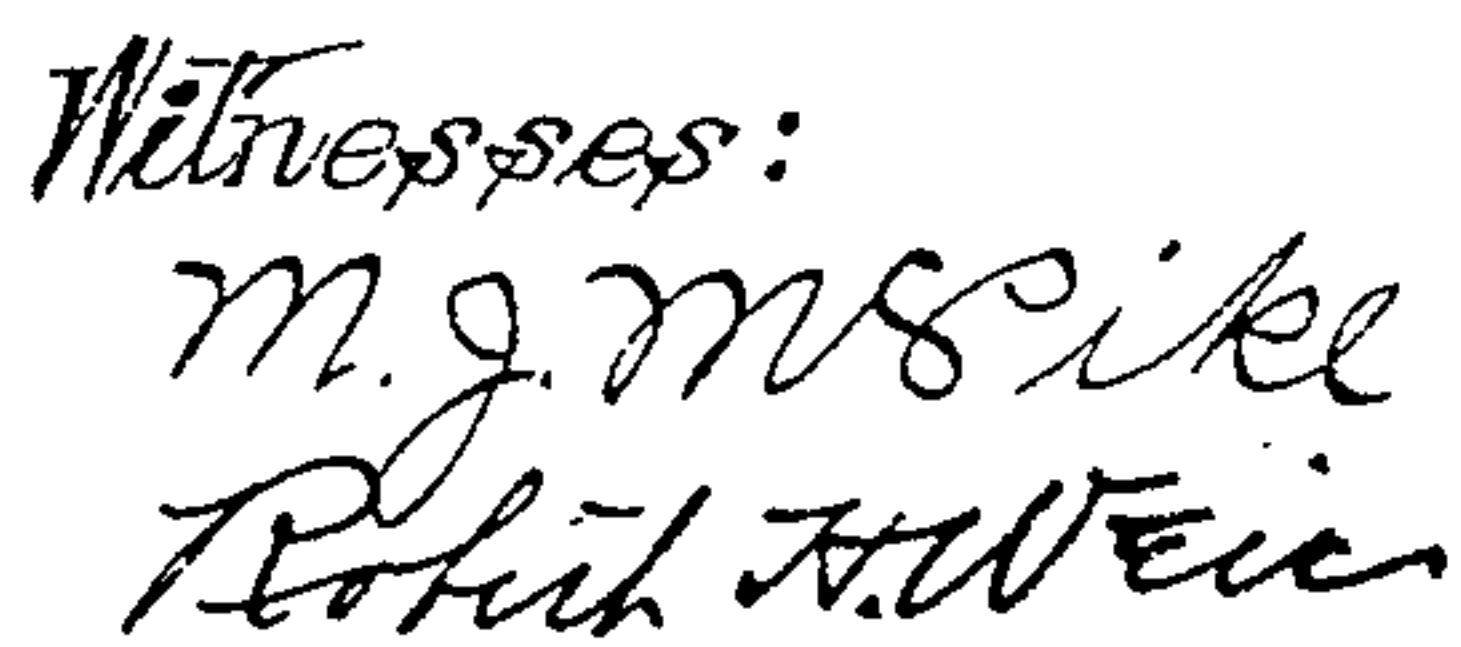 Witnesses:
M. J. McPike
Robert H. Weir